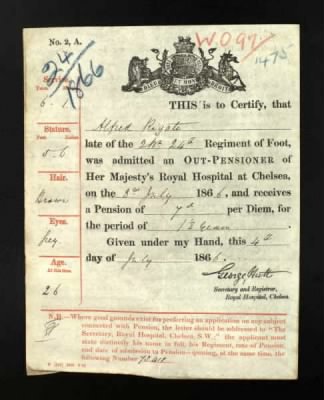 No. 2, A.
W.O 97
1475
24/1866
DIEU ET MON DROIT
Service.
Years
6
THIS is to Certify, that
Alfred
Stature.
Feet. Inches.
5. 6
late of the 2nd 24th Regiment of Foot,
was admitted an OUT-PENSIONER of
Hair.
Brown
Her Majesty's Royal Hospital at Chelsea,
on the July 1866, and receives
a Pension of 7d per Diem, for
Eyes.
Grey
the period of 18 years.
Given under my Hand, this 4th
Age.
At this time.
26
day of July 1866.
George Hutt
Secretary and Registrar,
Royal Hospital, Chelsea.
N.B.—Where good grounds exist for preferring an application on any subject
connected with Pension, the letter should be addressed to "The
Secretary, Royal Hospital, Chelsea, S.W.;" the applicant must
state distinctly his name in full, his Regiment, rate of Pension,
and date of admission to Pension—quoting, at the same time, the
following Number